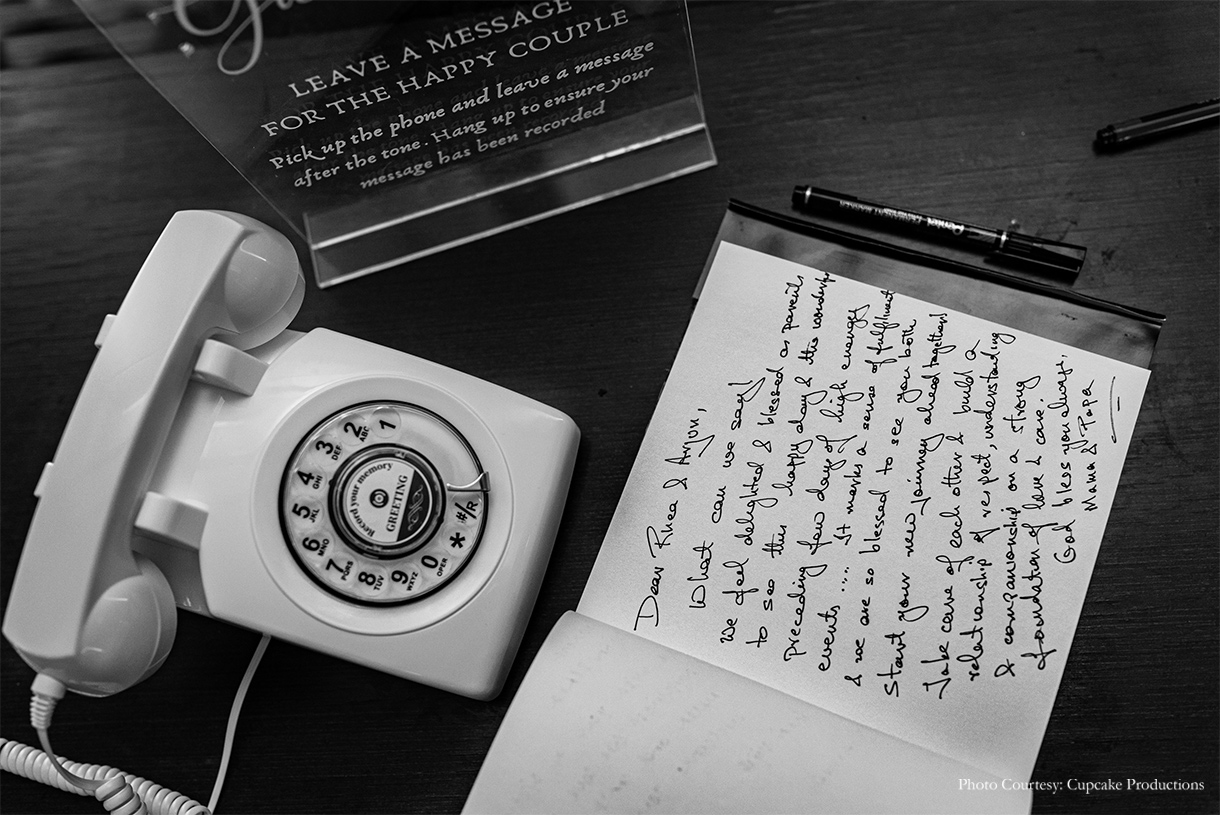 LEAVE A MESSAGE
FOR THE HAPPY COUPLE
Pick up the phone and leave a message
after the tone. Hang up to ensure your
message has been recorded
Pentel
PERMANENT MARKER
1
2 ABC
3 DEF
4 GHI
5 JKL
6 MNO
7 PQRS
8 TUV
9 WXYZ
0 OPER
*
#/R
Record your memory
GREETING
Dear Rhea & Arjun,
What can we say!
We feel delighted & blessed as parents
to see this happy day & this wonderful
preceding few days of high energy
events .... It marks a sense of fulfilment
& we are so blessed to see you both
Start your new journey ahead together!
Take care of each other & build a
relationship of respect, understanding
& companionship on a strong
foundation of love & care.
God bless you always,
Mama & Papa
Photo Courtesy: Cupcake Productions